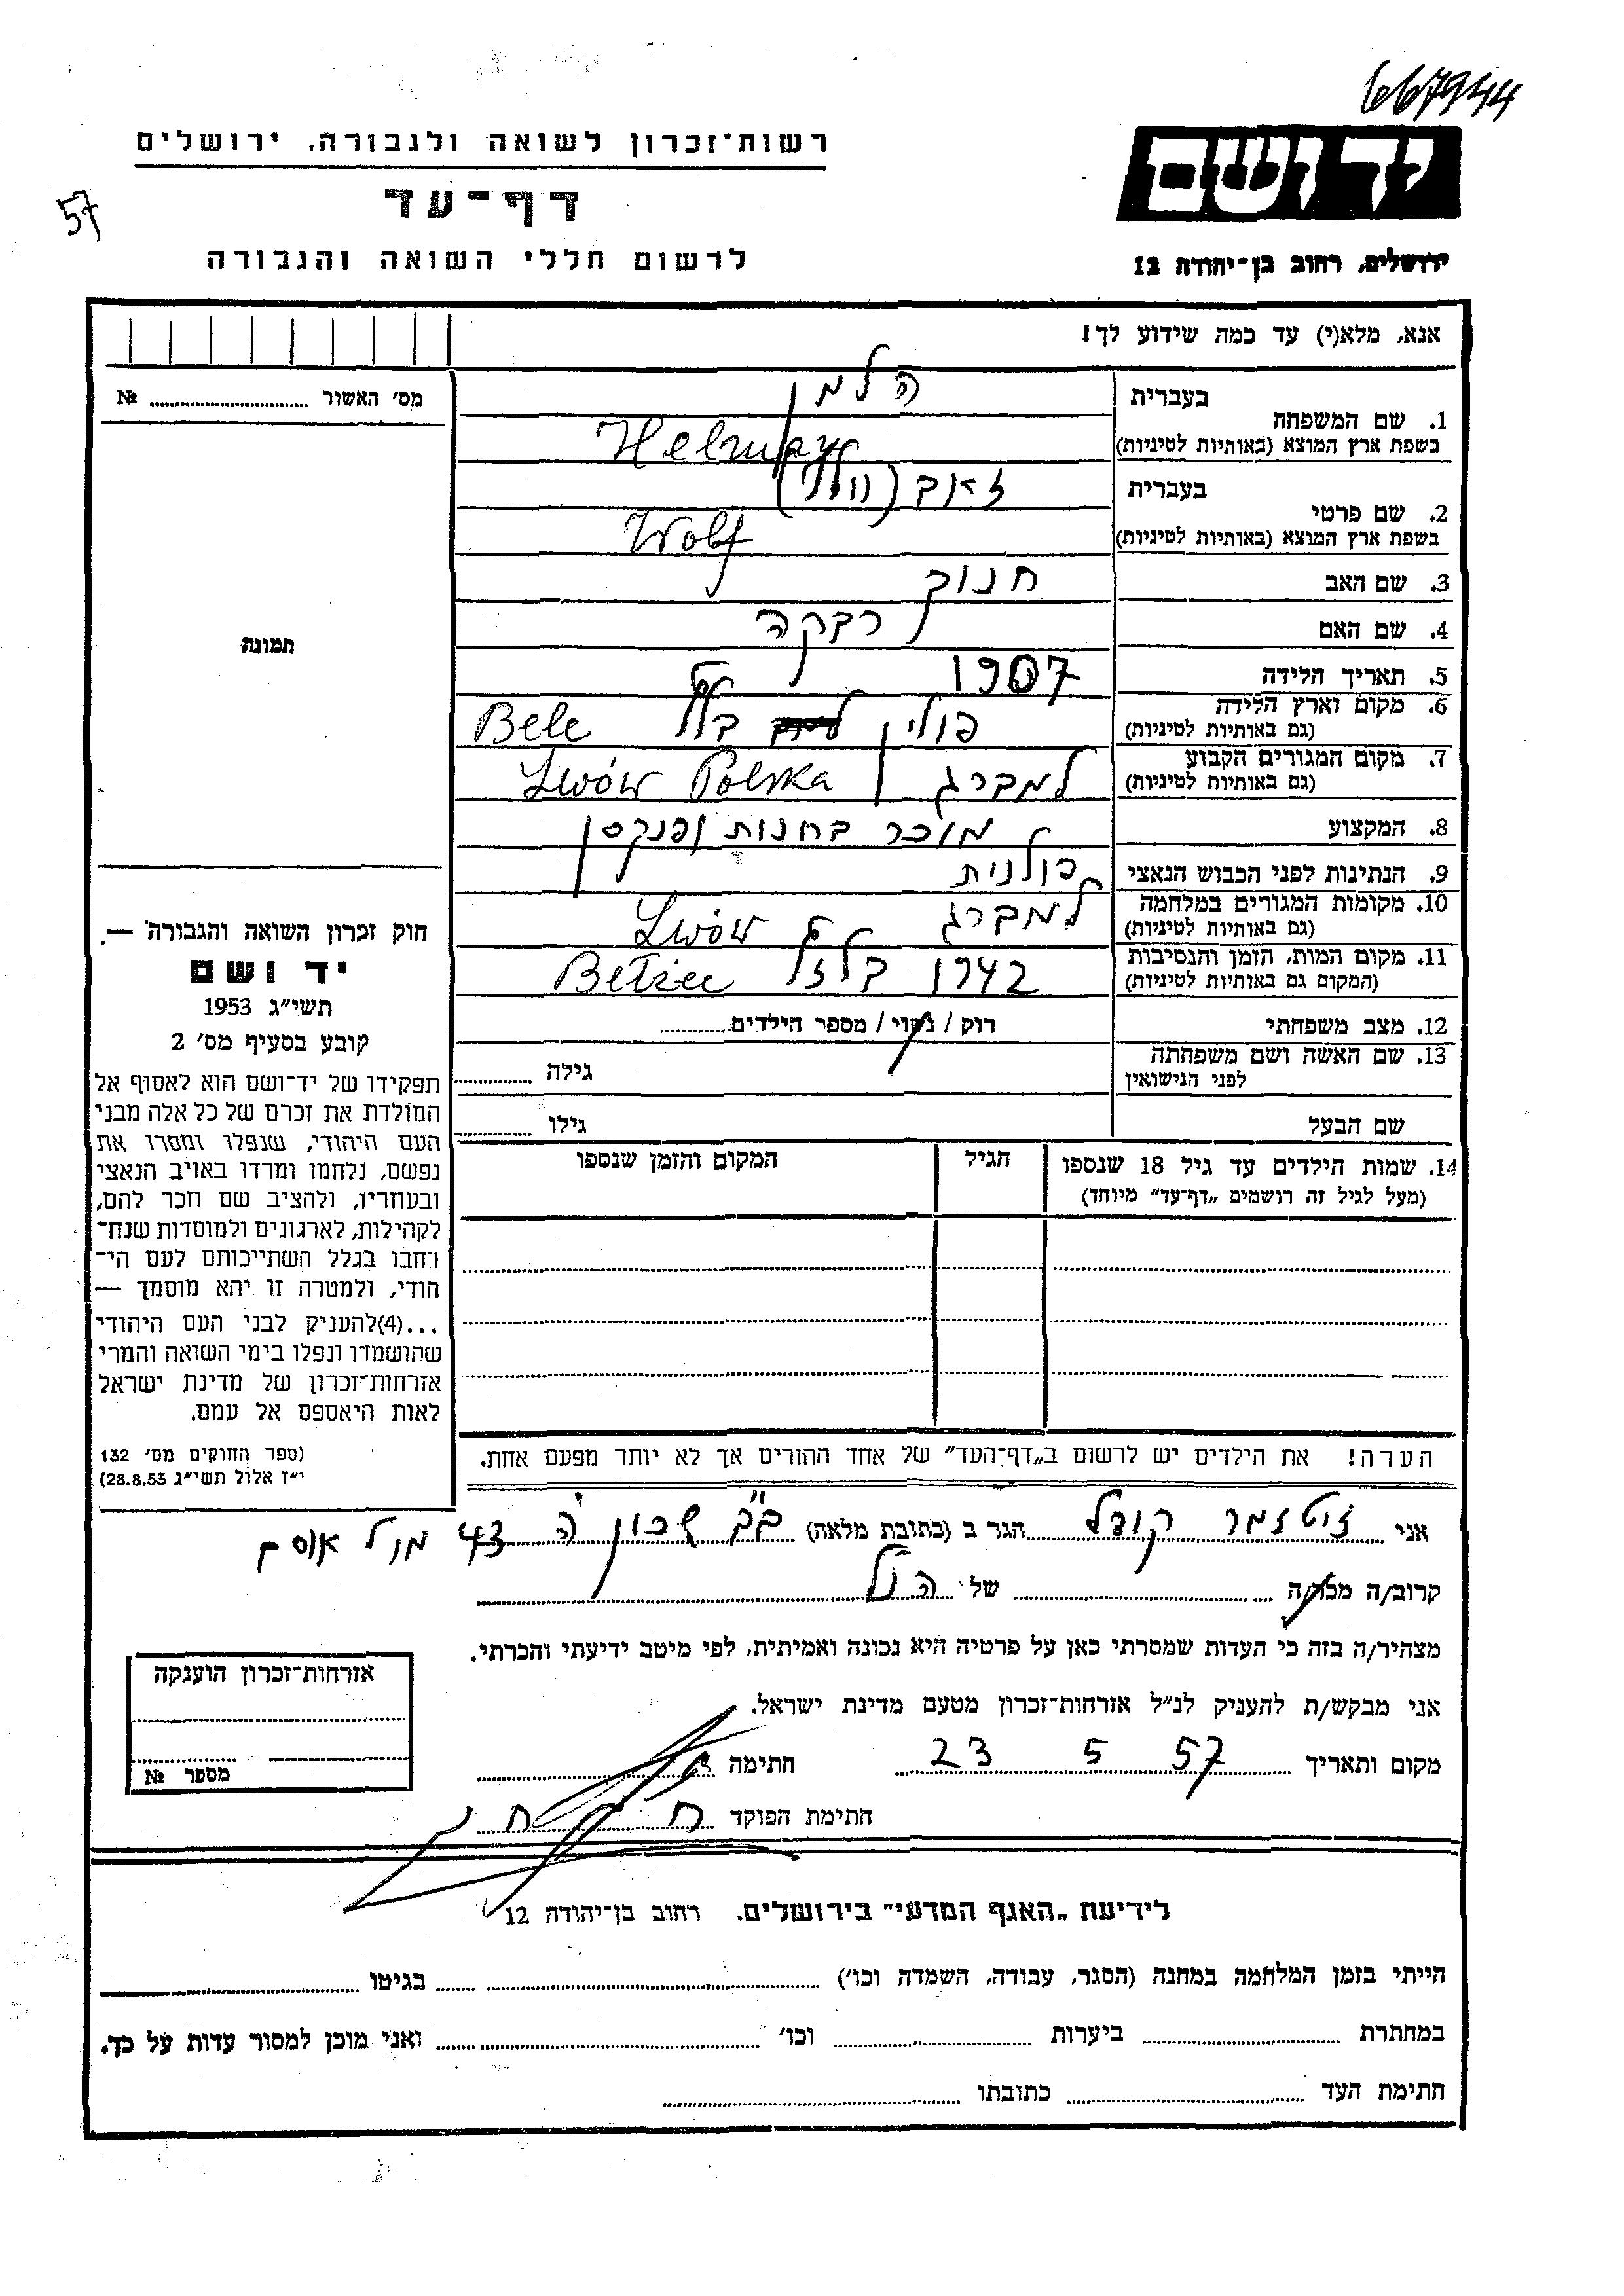 667944
רשות־זכרון לשואה ולגבורה, ירושלים
יד ושם
דף־עד
57
לרשום חללי השואה והגבורה
ירושלים, רחוב בן־יהודה 12
אנא, מלא(י) עד כמה שידוע לך!
מס׳ האשור № 
תמונה
1. שם המשפחה
בעברית הלמן
בשפת ארץ המוצא (באותיות לטיניות) Helman
2. שם פרטי
בעברית זאב (וולף)
בשפת ארץ המוצא (באותיות לטיניות) Wolf
3. שם האב חנוך
4. שם האם רבקה
5. תאריך הלידה 1907
6. מקום וארץ הלידה פולין
(גם באותיות לטיניות) Bełc
7. מקום המגורים הקבוע למברג Lwów Polska
(גם באותיות לטיניות)
8. המקצוע מוכר בחנות ופנקסן
9. הנתינות לפני הכבוש הנאצי פולנית
10. מקומות המגורים במלחמה למברג Lwów
(גם באותיות לטיניות)
11. מקום המות, הזמן והנסיבות 1942 Bełżec
(המקום גם באותיות לטיניות)
12. מצב משפחתי רוק / נשוי / מספר הילדים
13. שם האשה ושם משפחתה גילה
לפני הנישואין
שם הבעל גילו
14. שמות הילדים עד גיל 18 שנספו הגיל המקום והזמן שנספו
(מעל לגיל זה רושמים „דף־עד״ מיוחד)
הערה! את הילדים יש לרשום ב„דף־העד״ של אחד ההורים אך לא יותר מפעם אחת.
חוק זכרון השואה והגבורה —
יד ושם
תשי״ג 1953
קובע בסעיף מס׳ 2
תפקידו של יד־ושם הוא לאסוף אל
המולדת את זכרם של כל אלה מבני
העם היהודי, שנפלו ומסרו את
נפשם, נלחמו ומרדו באויב הנאצי
ובעוזריו, ולהציב שם וזכר להם,
לקהילות, לארגונים ולמוסדות שנח־
רחבו בגלל השתייכותם לעם הי־
הודי, ולמטרה זו יהא מוסמך —
...(4)להעניק לבני העם היהודי
שהושמדו ונפלו בימי השואה והמרי
אזרחות־זכרון של מדינת ישראל
לאות היאספם אל עמם.
(ספר החוקים מס׳ 132
י״ז אלול תשי״ג 28.8.53)
אני הגר ב (כתובת מלאה) ב״ב שכון ה׳ 43 מול אוסם
קרוב/ה מכר/ה של הנ״ל
מצהיר/ה בזה כי העדות שמסרתי כאן על פרטיה היא נכונה ואמיתית, לפי מיטב ידיעתי והכרתי.
אני מבקש/ת להעניק לנ״ל אזרחות־זכרון מטעם מדינת ישראל.
מקום ותאריך 23 5 57 חתימה
חתימת הפוקד
אזרחות־זכרון הוענקה
מספר №
לידיעת „האגף המדעי״ בירושלים, רחוב בן־יהודה 12
הייתי בזמן המלחמה במחנה (הסגר, עבודה, השמדה וכו׳) בגיטו
במחתרת ביערות וכו׳ ואני מוכן למסור עדות על כך.
חתימת העד כתובתו